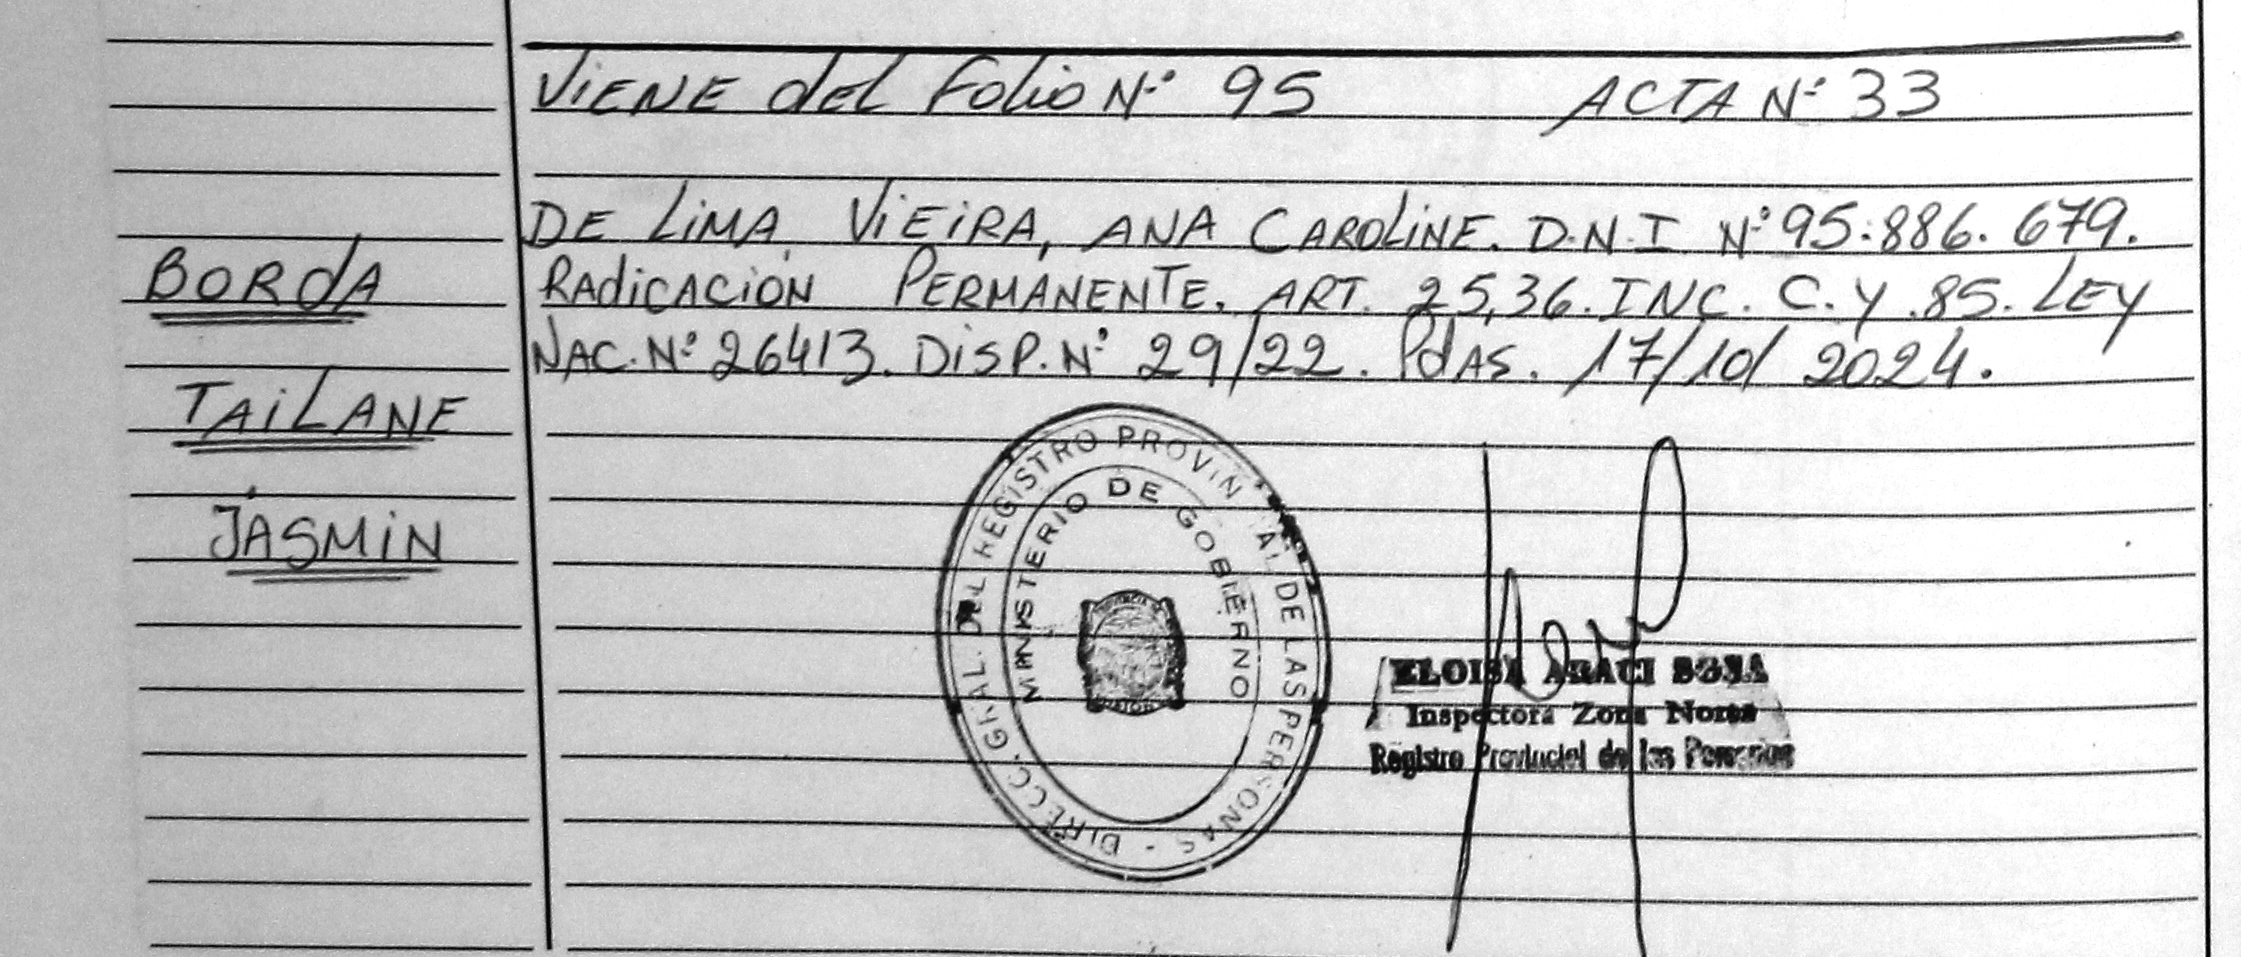 ViENE del Folio Nº 95 ACTA Nº 33
DE LiMA, ViEiRA, ANA CAROLiNE. D.N.I Nº 95.886.679.
RAdiCACiÓN PERMANENTE. ART. 25,36.INC. C.Y.85. LEY
NAC. Nº 26413. DiSP. Nº 29/22. PdAS. 17/10/2024.
BORdA
TAiLANE
JASMiN
DIRECC. GRAL. DEL REGISTRO PROVINCIAL DE LAS PERSONAS -
MINISTERIO DE GOBIERNO
ELOISA ARACI SOSA
Inspectora Zona Norte
Registro Provincial de las Personas